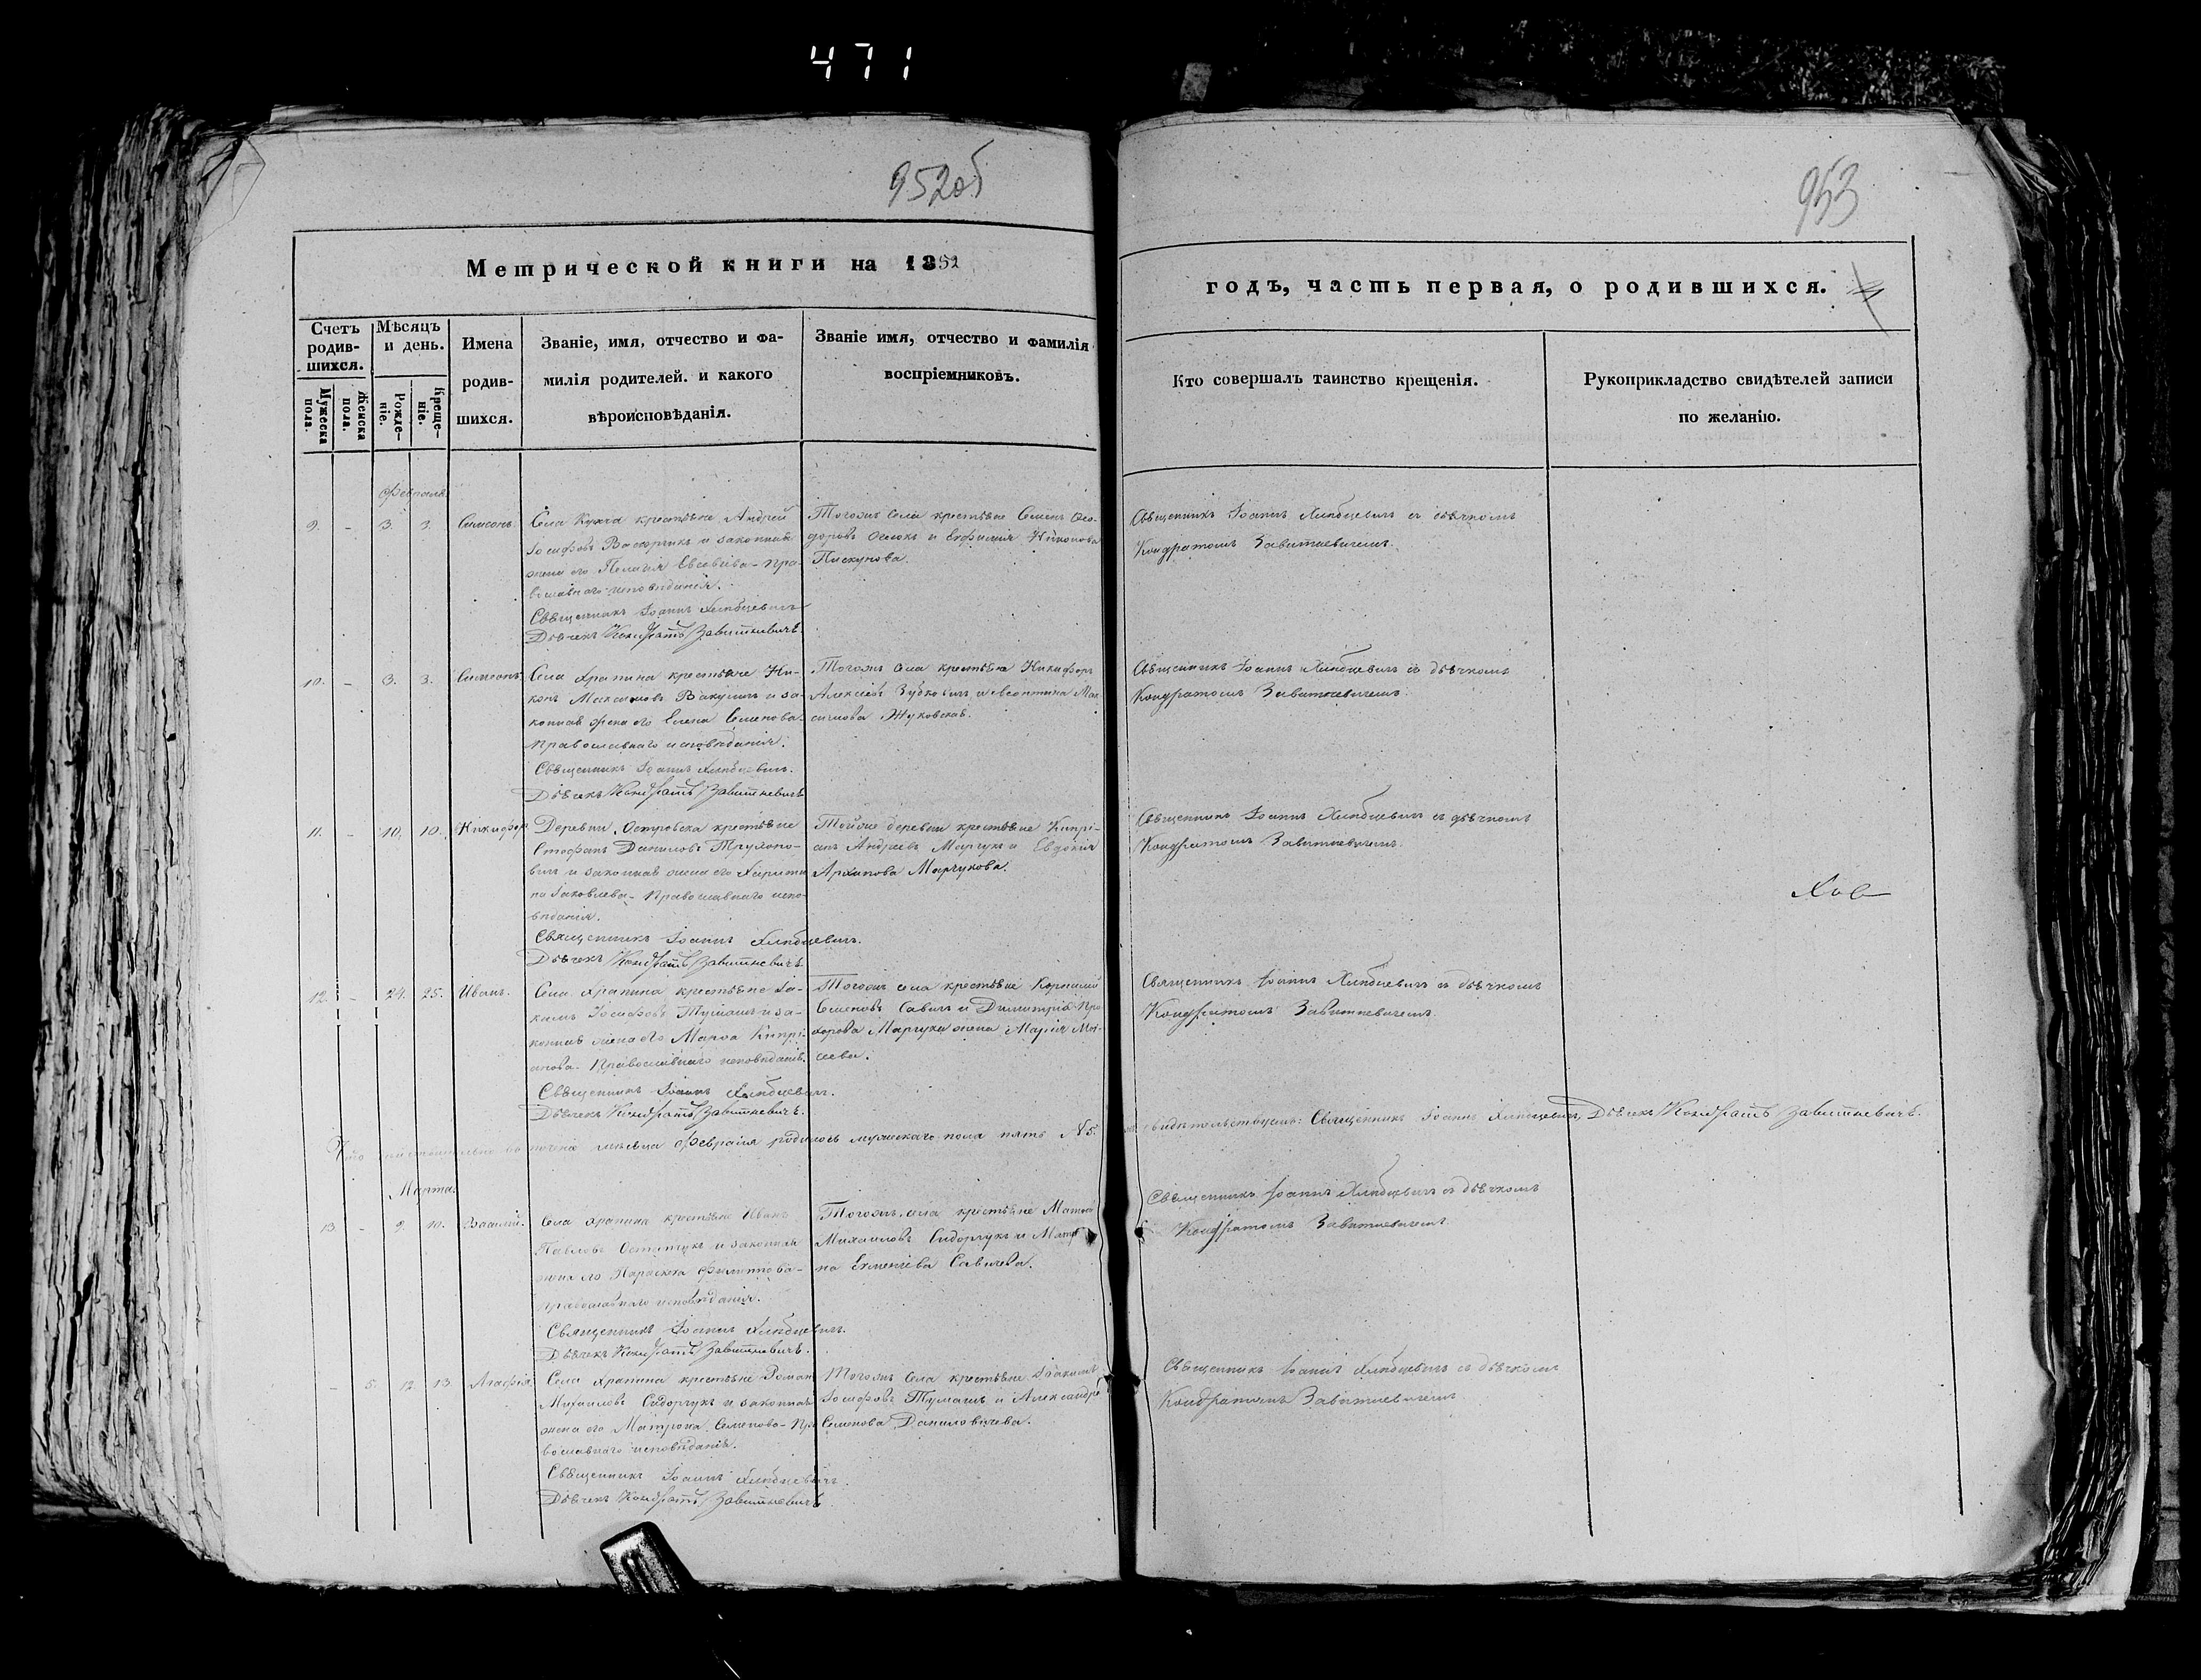 471
952об
953
Метрической книги на 1852
годъ, часть первая, о родившихся.
Счетъ родив-шихся.
Мѣсяцъ и день.
Имена родив-шихся.
Званіе, имя, отчество и фа-
милія родителей. и какого
вѣроисповѣданія.
Званіе имя, отчество и фамилія
воспріемниковъ.
Кто совершалъ таинство крещенія.
Рукоприкладство свидѣтелей записи
по желанію.
Мужеска пола.
Женска пола.
Рожде-ніе.
Креще-ніе.
Февраля.
9. - 3. 3. Симеонъ.
Села Кухча крестьяне Андрей
Іосифовъ и законная
жена его Пелагія Евсевіева - пра-
вославнаго исповѣданія.
Священникъ Іоаннъ Хлѣбцевичъ
Дьячекъ Кондратъ Завитневичъ.
Тогожъ села крестьяне Семенъ Ѳео-
доровъ и Евфимія
Пискунова.
Священникъ Іоаннъ Хлѣбцевичъ съ дьячкомъ
Кондратомъ Завитневичемъ.
10. - 3. 3. Симеонъ.
Села Храпина крестьяне Ни-
конъ Максимовъ Вакуличъ и за-
конная жена его Елена Семенова
православнаго исповѣданія.
Священникъ Іоаннъ Хлѣбцевичъ.
Дьячекъ Кондратъ Завитневичъ
Тогожъ села крестьяне Никифоръ
Алексѣевъ Зубковичъ и Леонтина Мак
симова Жуковская.
Священникъ Іоаннъ Хлѣбцевичъ съ дьячкомъ
Кондратомъ Завитневичемъ.
11. - 10. 10. Никифоръ
Деревни Островска крестьяне
Стефанъ Даниловъ Трухоно-
вичъ и законная жена его Харити
на Іаковлева - Православнаго испо-
вѣданія.
Священникъ Іоаннъ Хлѣбцевичъ.
Дьячекъ Кондратъ Завитневичъ.
Тойже деревни крестьяне Кипрі-
анъ Андреевъ Марчукъ и Евдокія
Архипова Марчукова.
Священникъ Іоаннъ Хлѣбцевичъ съ дьячкомъ
Кондратомъ Завитневичемъ.
12. - 24. 25. Иванъ.
Села Храпина крестьяне Іа-
кимъ Іосифовъ Тумашъ и за-
конная жена его Марѳа Кипрі-
анова - Православнаго исповѣданія.
Священникъ Іоаннъ Хлѣбцевичъ.
Дьячекъ Кондратъ Завитневичъ.
Тогожъ села крестьяне Корнилій
Семеновъ Савичъ и Димитрія Про
хорова Марчука жена Марія Мои-
сеева.
Священникъ Іоаннъ Хлѣбцевичъ съ дьячкомъ
Кондратомъ Завитневичемъ.
Что дѣйствительно въ теченіе мѣсяца Февраля родилось мужескаго пола пять № 5.
свидѣтельствуемъ: Священникъ Іоаннъ Хлѣбцевичъ, Дьячекъ Кондратъ Завитневичъ.
Марта.
13 - 9. 10. Василій.
Села Храпина крестьяне Иванъ
Павловъ и законная
жена его Параскева Филиппова -
православнаго исповѣданія.
Священникъ Іоаннъ Хлѣбцевичъ.
Дьячекъ Кондратъ Завитневичъ.
Тогожъ села крестьяне Матвей
Михаиловъ Сидорчукъ и Матро
на Савичева.
Священникъ Іоаннъ Хлѣбцевичъ съ дьячкомъ
Кондратомъ Завитневичемъ.
- 5. 12. 13. Агафія.
Села Храпина крестьяне Романъ
Михаиловъ Сидорчукъ и законная
жена его Матрона Семенова - Пра
вославнаго исповѣданія.
Священникъ Іоаннъ Хлѣбцевичъ.
Дьячекъ Кондратъ Завитневичъ.
Тогожъ села крестьяне Іоакимъ
Іосифовъ Тумашъ и Александра
Семенова Даниловичева.
Священникъ Іоаннъ Хлѣбцевичъ съ дьячкомъ
Кондратомъ Завитневичемъ